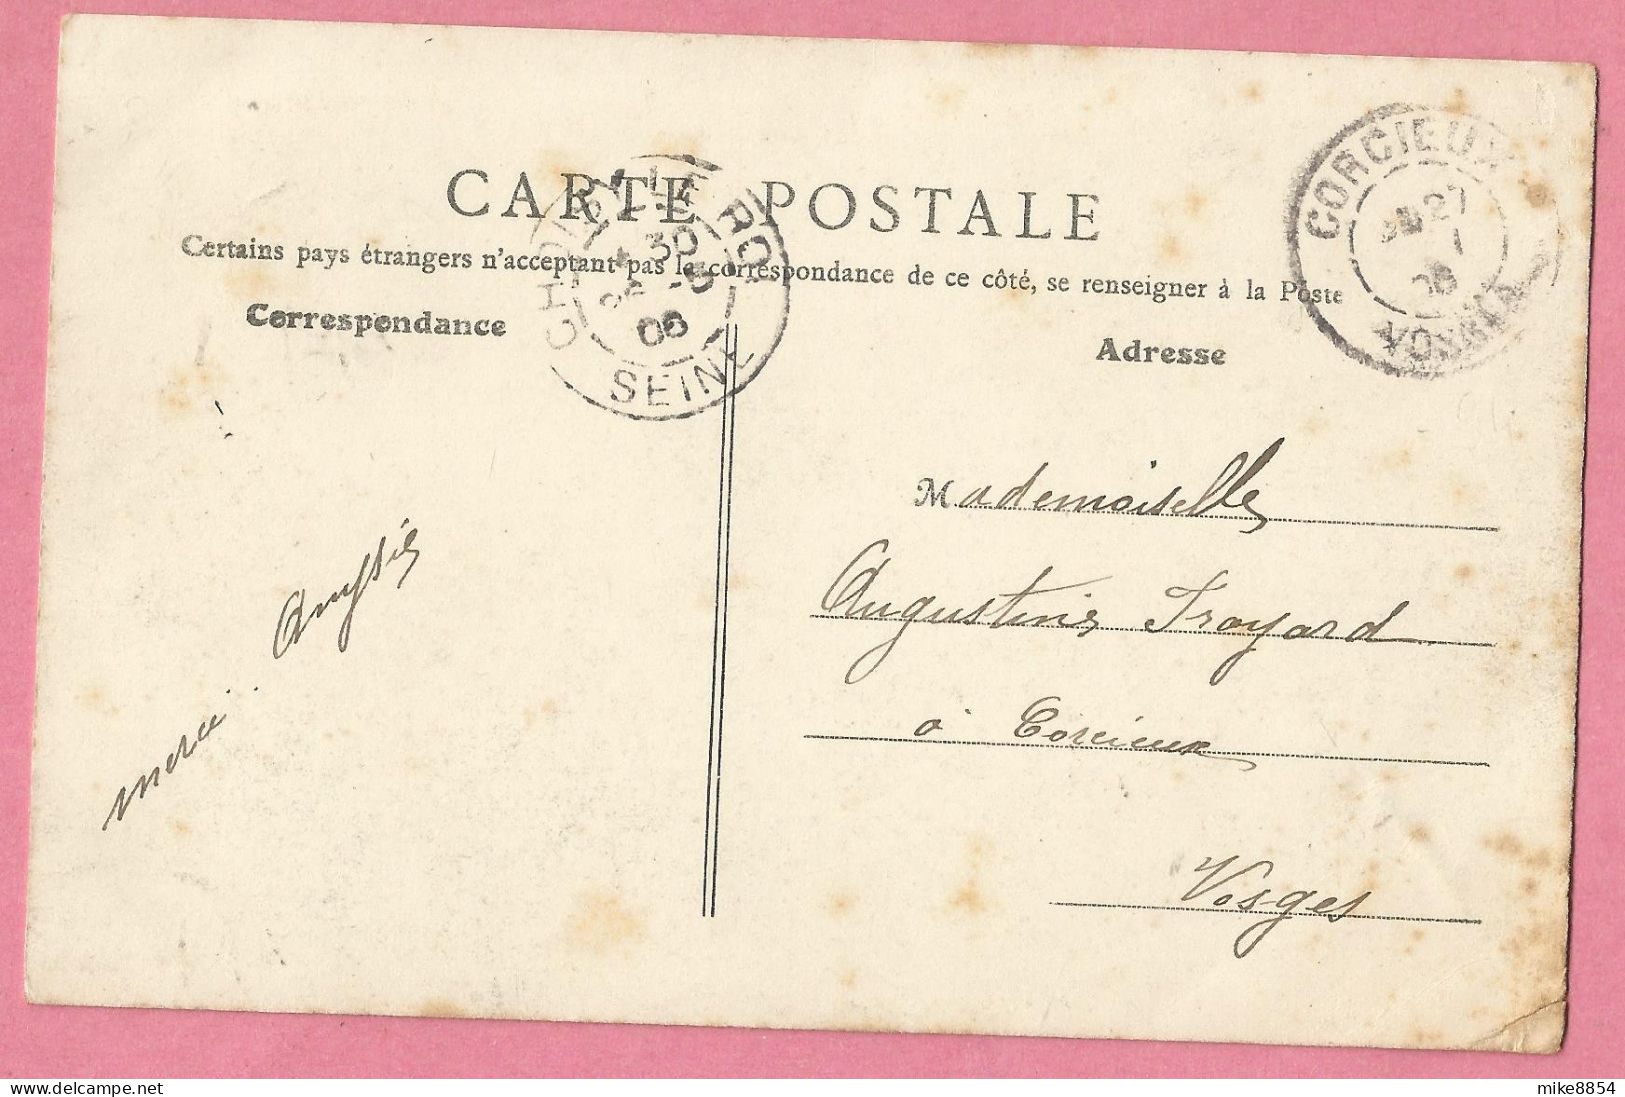 CARTE POSTALE
Certains pays étrangers n'acceptant pas la correspondance de ce côté, se renseigner à la Poste
Correspondance
Adresse
CHOISY LE ROI
30
-5
06
SEINE
CORCIEUX
27
06
VOSGES
Mademoiselle
Augustine Froyard
à Corcieux
Vosges
merci.
mike8854